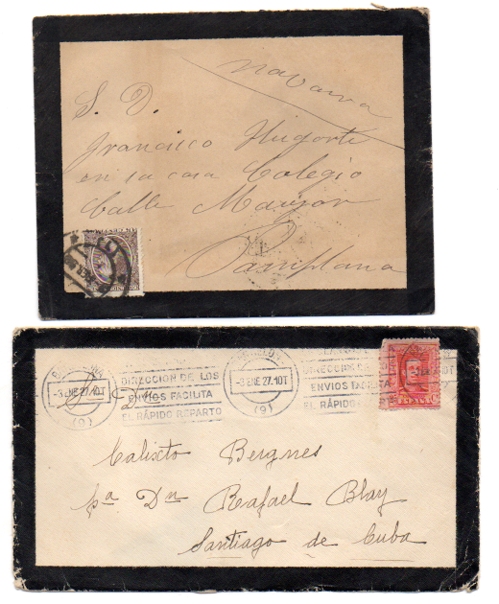 Navarra
S. D.
Francisco Hugorte
en su casa Colegio
Calle Mayor
Pamplona
-3 ENE 27.10T
(9)
DIRECCIÓN DE LOS
ENVIOS FACILITA
EL RÁPIDO REPARTO
BARCELONA
-3 ENE 27.10T
(9)
ENVIOS FACILITA
EL RÁPIDO
ESPAÑA
Calixto Bergnes
pa Dn Rafael Blay
Santiago de Cuba